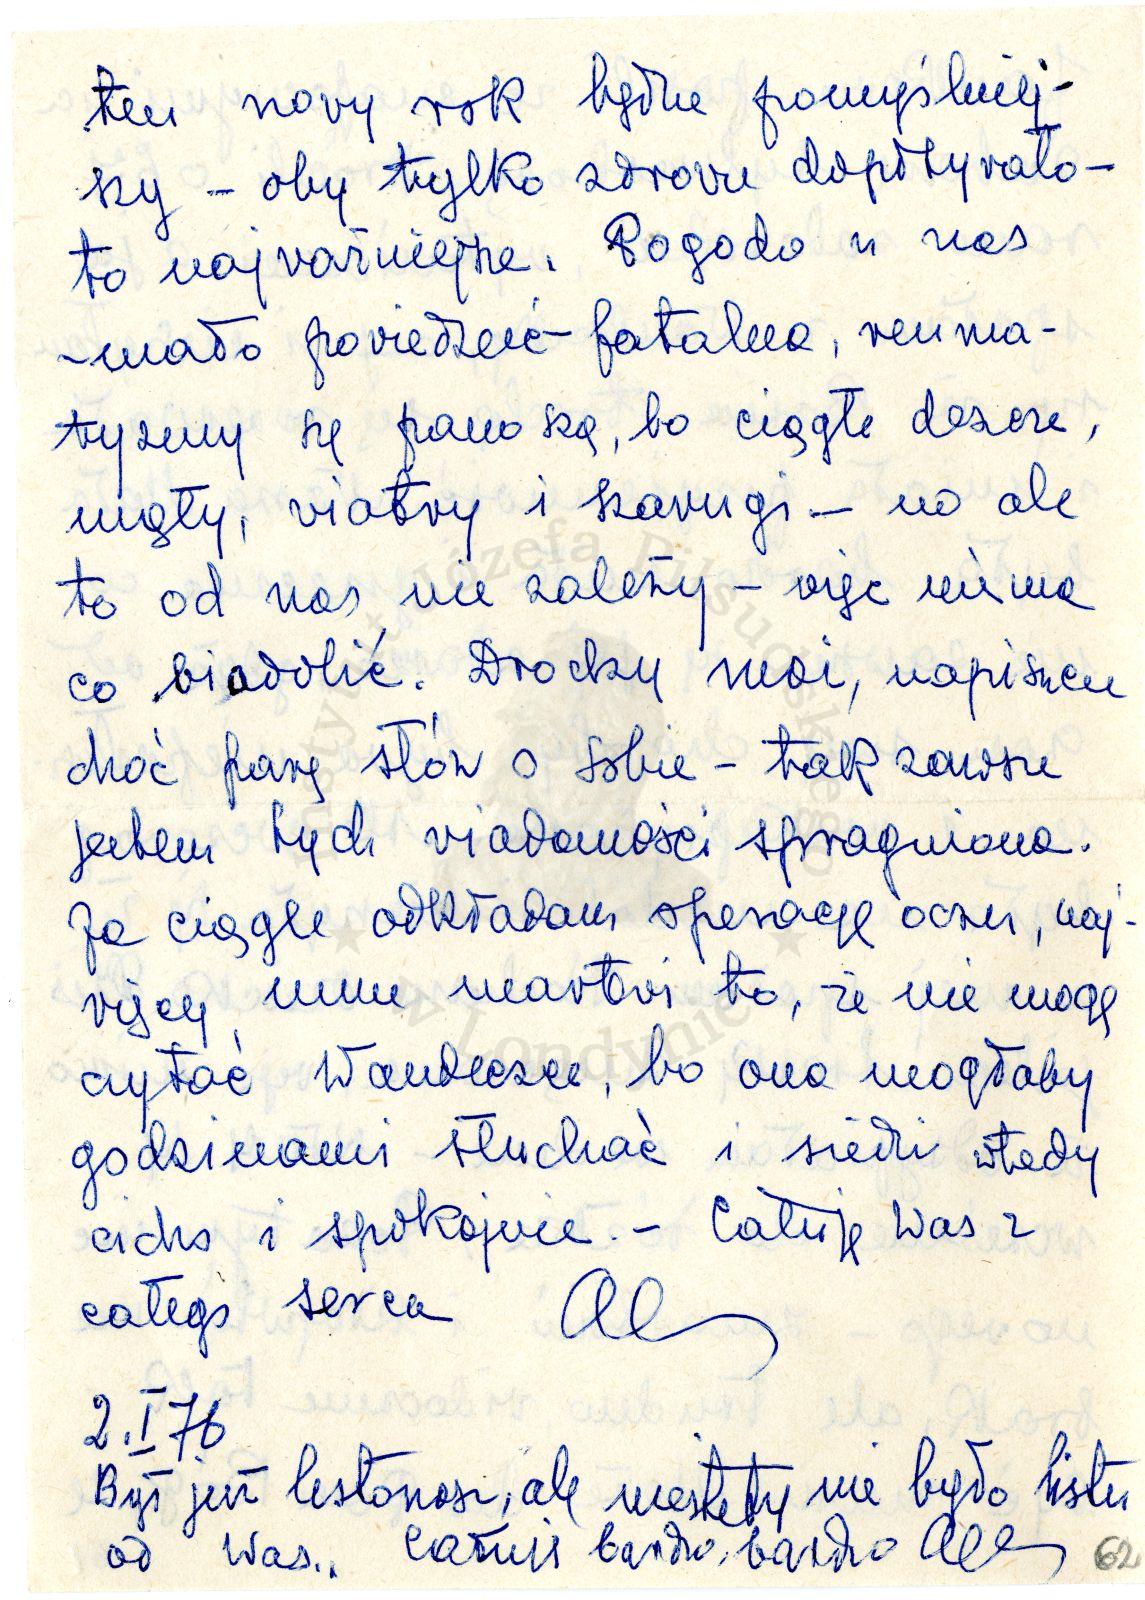 ten nowy rok będzie pomyślniej-
szy – oby tylko zdrowie dopisywało –
to najważniejsze. Pogoda u nas
– mało powiedzieć – fatalna, reuma-
tyzmy się panoszą, bo ciągłe deszcze,
mgły, wiatry i szarugi – no ale
to od nas nie zależy – więc nie ma
co biadolić. Drodzy moi, napiszcie
choć parę słów o sobie – tak zawsze
jestem tych wiadomości spragniona.
Ja ciągle odkładam operację oczu, naj-
więcej mnie martwi to, że nie mogę
czytać Wandeczce, bo ona mogłaby
godzinami słuchać i siedzi wtedy
cicho i spokojnie. – Całuję Was z
całego serca Al
2.I 76
Był już listonosz, ale niestety nie było listu
od Was.. Całuję bardzo, bardzo Al
62
Instytut Józefa Piłsudskiego
w Londynie